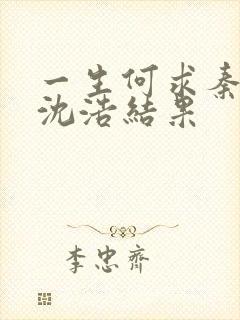 一生何求秦
沈浩結果
李忠齊